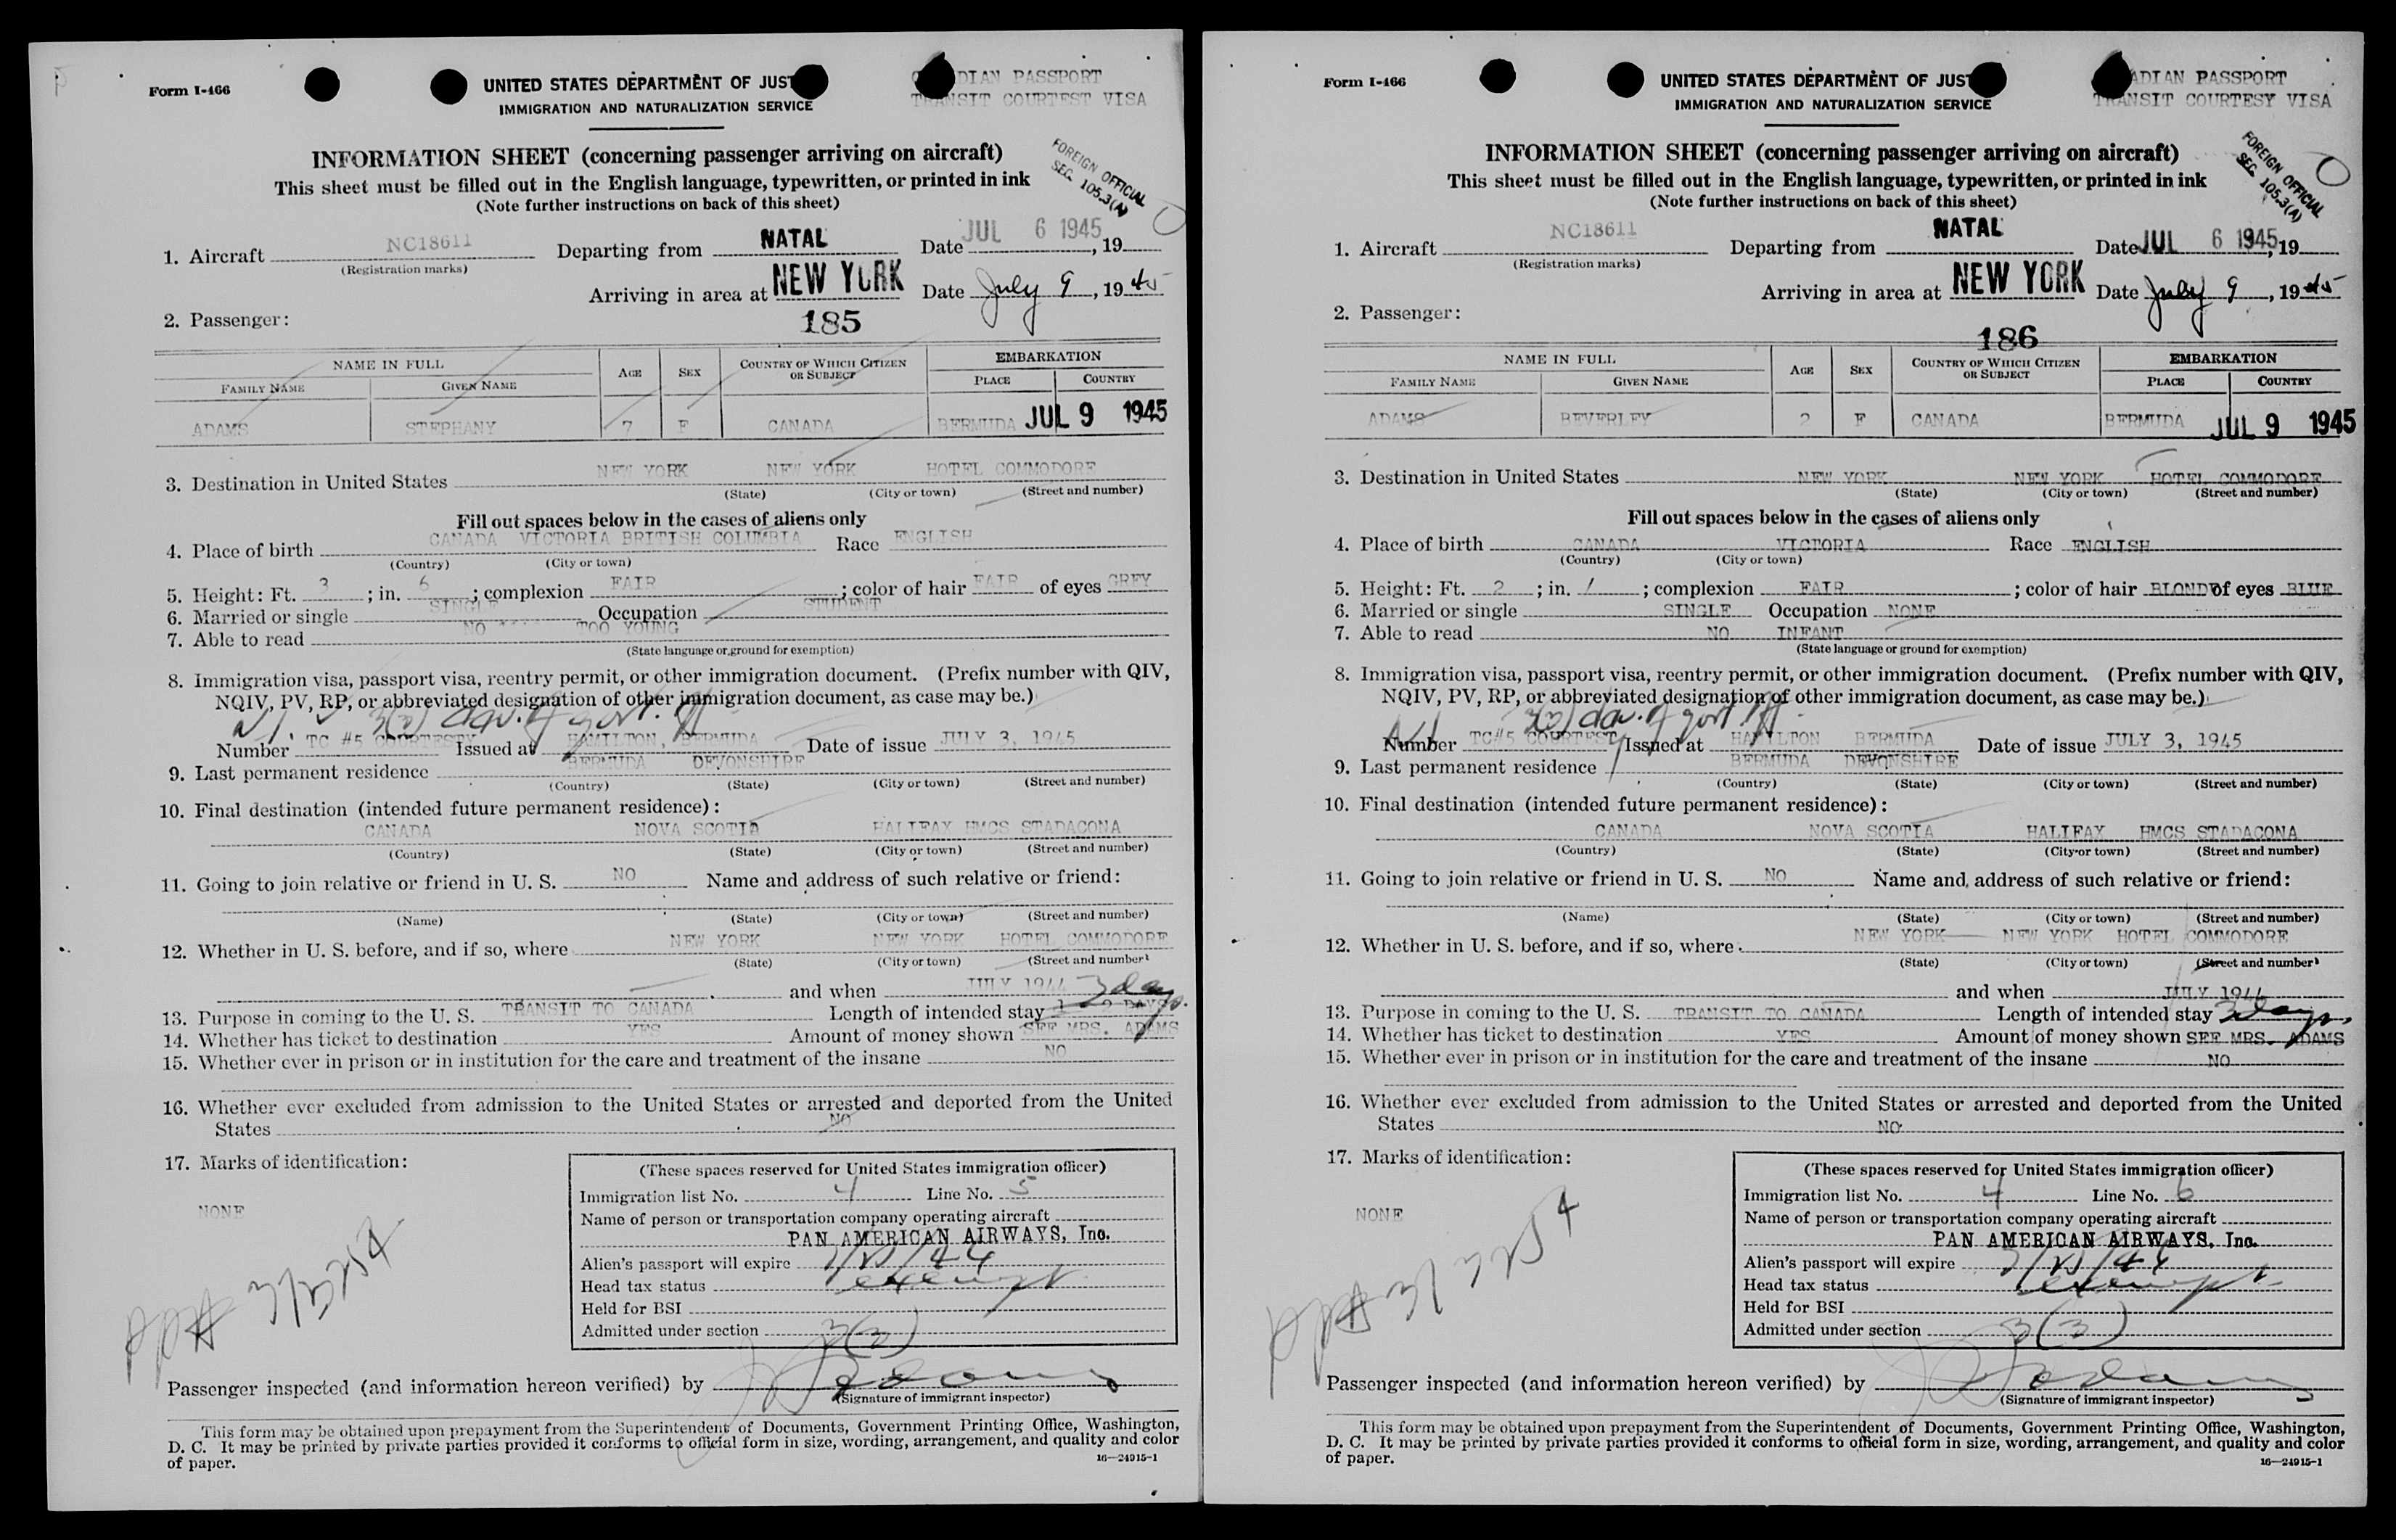 Form I-466
UNITED STATES DEPARTMENT OF JUST
IMMIGRATION AND NATURALIZATION SERVICE
DIAN PASSPORT
TRANSIT COURTEST VISA
INFORMATION SHEET (concerning passenger arriving on aircraft)
This sheet must be filled out in the English language, typewritten, or printed in ink
(Note further instructions on back of this sheet)
FOREIGN OFFICIAL
SEC. 105.3(A)
1. Aircraft NC18611 Departing from NATAL Date JUL 6 1945, 19
(Registration marks)
Arriving in area at NEW YORK Date July 9, 1945
2. Passenger:
185
NAME IN FULL AGE SEX COUNTRY OF WHICH CITIZEN OR SUBJECT EMBARKATION
FAMILY NAME GIVEN NAME PLACE COUNTRY
ADAMS STEPHANY 7 F CANADA BERMUDA JUL 9 1945
3. Destination in United States NEW YORK NEW YORK HOTEL COMMODORE
(State) (City or town) (Street and number)
Fill out spaces below in the cases of aliens only
4. Place of birth CANADA VICTORIA BRITISH COLUMBIA Race ENGLISH
(Country) (City or town)
5. Height: Ft. 3 ; in. 6 ; complexion FAIR ; color of hair FAIR of eyes GREY
6. Married or single SINGLE Occupation STUDENT
7. Able to read NO TOO YOUNG
(State language or ground for exemption)
8. Immigration visa, passport visa, reentry permit, or other immigration document. (Prefix number with QIV,
NQIV, PV, RP, or abbreviated designation of other immigration document, as case may be.)
3(2) dau. of govt. off.
Number TC #5 COURTESTY Issued at HAMILTON, BERMUDA Date of issue JULY 3, 1945
9. Last permanent residence BERMUDA DEVONSHIRE
(Country) (State) (City or town) (Street and number)
10. Final destination (intended future permanent residence):
CANADA NOVA SCOTIA HALIFAX HMCS STADACONA
(Country) (State) (City or town) (Street and number)
11. Going to join relative or friend in U. S. NO Name and address of such relative or friend:
(Name) (State) (City or town) (Street and number)
12. Whether in U. S. before, and if so, where NEW YORK NEW YORK HOTEL COMMODORE
(State) (City or town) (Street and number)
and when JULY 1944
13. Purpose in coming to the U. S. TRANSIT TO CANADA Length of intended stay 3 days.
14. Whether has ticket to destination YES Amount of money shown SEE MRS. ADAMS
15. Whether ever in prison or in institution for the care and treatment of the insane NO
16. Whether ever excluded from admission to the United States or arrested and deported from the United
States NO
17. Marks of identification:
NONE
(These spaces reserved for United States immigration officer)
Immigration list No. 4 Line No. 5
Name of person or transportation company operating aircraft
PAN AMERICAN AIRWAYS, Inc.
Alien's passport will expire
Head tax status exempt
Held for BSI
Admitted under section 3(3)
Passenger inspected (and information hereon verified) by
(Signature of immigrant inspector)
This form may be obtained upon prepayment from the Superintendent of Documents, Government Printing Office, Washington,
D. C. It may be printed by private parties provided it conforms to official form in size, wording, arrangement, and quality and color
of paper.
16—24915-1
Form I-466
UNITED STATES DEPARTMENT OF JUST
IMMIGRATION AND NATURALIZATION SERVICE
ADIAN PASSPORT
TRANSIT COURTESY VISA
INFORMATION SHEET (concerning passenger arriving on aircraft)
This sheet must be filled out in the English language, typewritten, or printed in ink
(Note further instructions on back of this sheet)
FOREIGN OFFICIAL
SEC. 105.3(A)
1. Aircraft NC18611 Departing from NATAL Date JUL 6 1945, 19
(Registration marks)
Arriving in area at NEW YORK Date July 9, 1945
2. Passenger:
186
NAME IN FULL AGE SEX COUNTRY OF WHICH CITIZEN OR SUBJECT EMBARKATION
FAMILY NAME GIVEN NAME PLACE COUNTRY
ADAMS BEVERLEY 2 F CANADA BERMUDA JUL 9 1945
3. Destination in United States NEW YORK NEW YORK HOTEL COMMODORE
(State) (City or town) (Street and number)
Fill out spaces below in the cases of aliens only
4. Place of birth CANADA VICTORIA Race ENGLISH
(Country) (City or town)
5. Height: Ft. 2 ; in. 1 ; complexion FAIR ; color of hair BLONDE of eyes BLUE
6. Married or single SINGLE Occupation NONE
7. Able to read NO INFANT
(State language or ground for exemption)
8. Immigration visa, passport visa, reentry permit, or other immigration document. (Prefix number with QIV,
NQIV, PV, RP, or abbreviated designation of other immigration document, as case may be.)
3(2) dau. of govt. off.
Number TC#5 COURTESY Issued at HAMILTON BERMUDA Date of issue JULY 3, 1945
9. Last permanent residence BERMUDA DEVONSHIRE
(Country) (State) (City or town) (Street and number)
10. Final destination (intended future permanent residence):
CANADA NOVA SCOTIA HALIFAX HMCS STADACONA
(Country) (State) (City or town) (Street and number)
11. Going to join relative or friend in U. S. NO Name and address of such relative or friend:
(Name) (State) (City or town) (Street and number)
12. Whether in U. S. before, and if so, where NEW YORK NEW YORK HOTEL COMMODORE
(State) (City or town) (Street and number)
and when JULY 1944
13. Purpose in coming to the U. S. TRANSIT TO CANADA Length of intended stay 3 days,
14. Whether has ticket to destination YES Amount of money shown SEE MRS. ADAMS
15. Whether ever in prison or in institution for the care and treatment of the insane NO
16. Whether ever excluded from admission to the United States or arrested and deported from the United
States NO
17. Marks of identification:
NONE
(These spaces reserved for United States immigration officer)
Immigration list No. 4 Line No. 6
Name of person or transportation company operating aircraft
PAN AMERICAN AIRWAYS, Inc.
Alien's passport will expire
Head tax status exempt
Held for BSI
Admitted under section 3(3)
Passenger inspected (and information hereon verified) by
(Signature of immigrant inspector)
This form may be obtained upon prepayment from the Superintendent of Documents, Government Printing Office, Washington,
D. C. It may be printed by private parties provided it conforms to official form in size, wording, arrangement, and quality and color
of paper.
16—24915-1